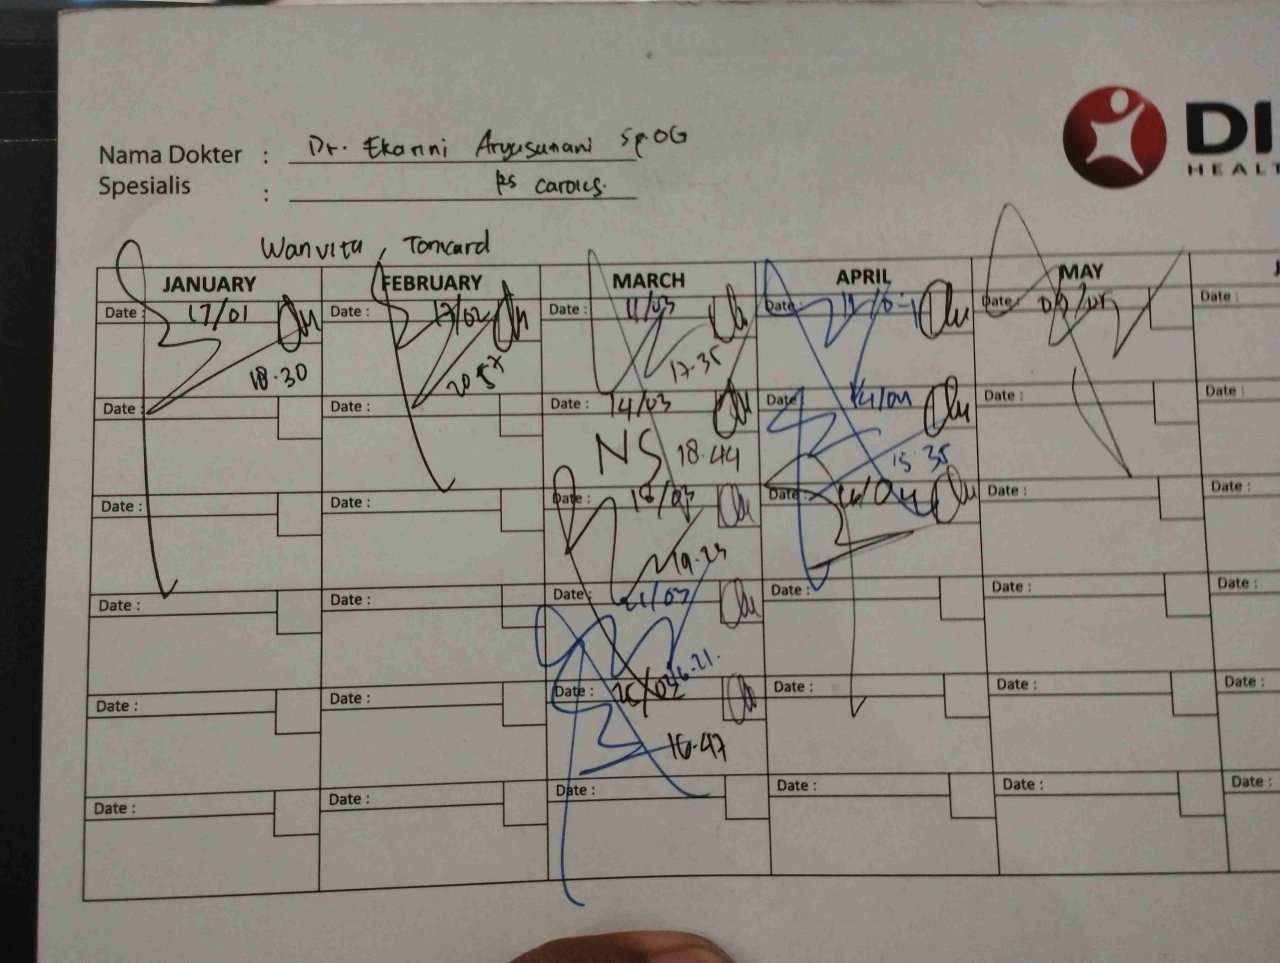 DI
HEALT
Nama Dokter : Dr. Ekarini Aryasunani Sp.OG
Spesialis : RS Carolus.
Wanvita, Tomcard
JANUARY FEBRUARY MARCH APRIL MAY J
Date : 17/01 Date : 17/02 Date : 11/03 Date : Date : Date :
18.30 20.57 17.35
Date : Date : Date : 14/03 Date : 14/04 Date : Date :
NS 18.44 15.35
Date : Date : Date : 18/03 Date : Date : Date :
19.23
Date : Date : Date : 21/03 Date : Date : Date :
16.21.
Date : Date : Date : 26/03 Date : Date : Date :
16.47
Date : Date : Date : Date : Date : Date :